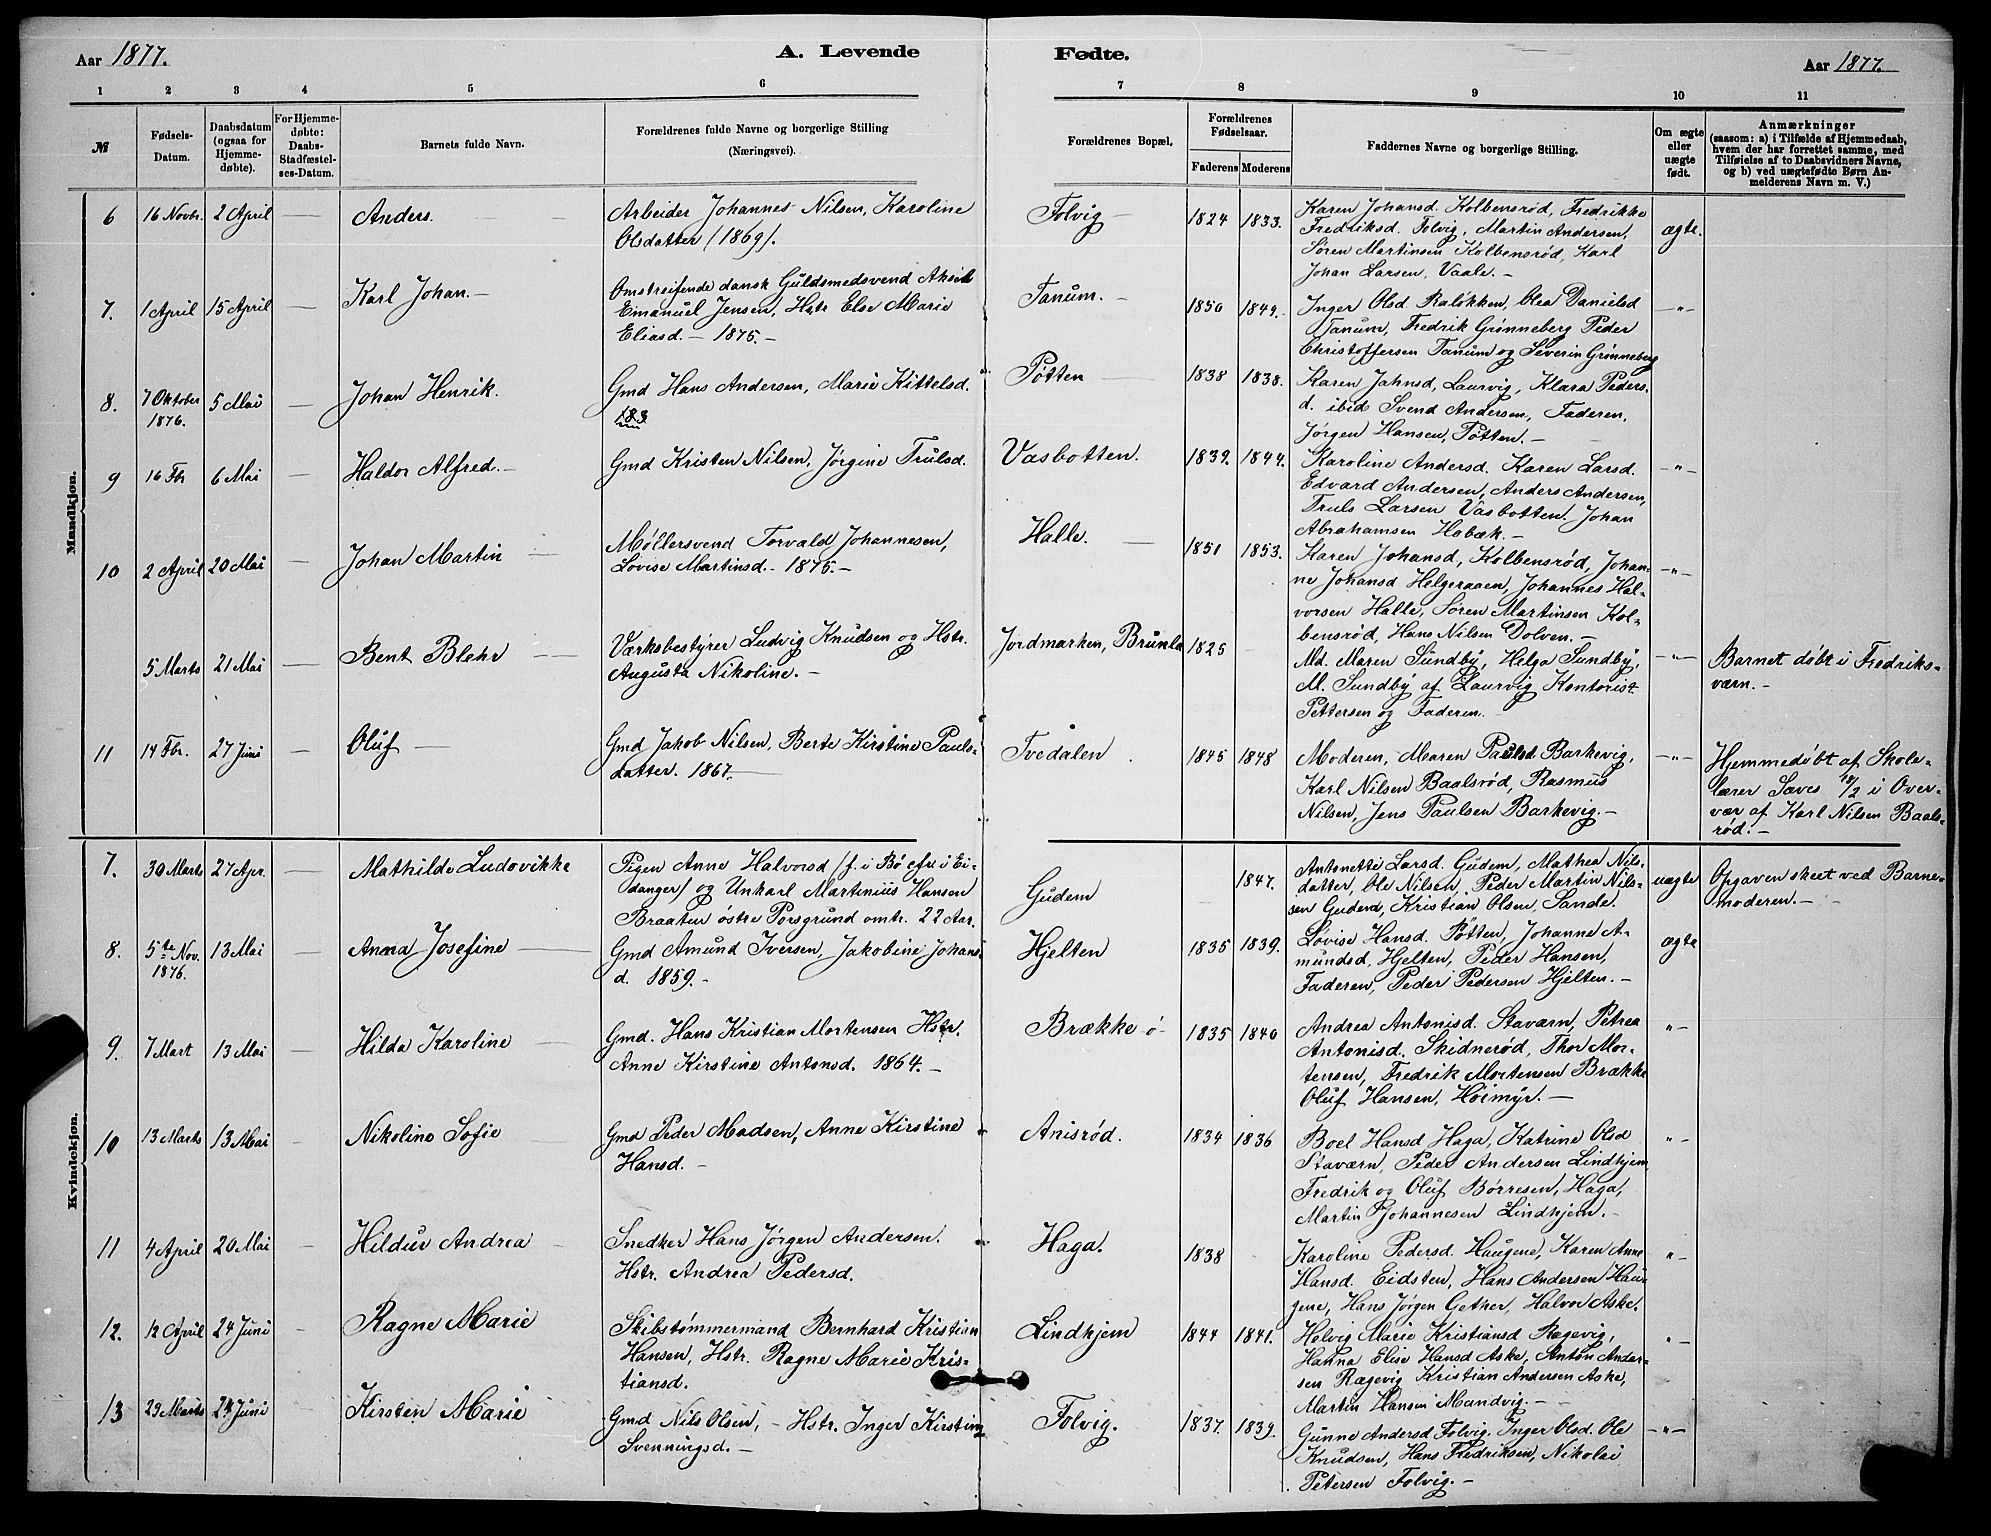 Aar 1877.
A. Levende
Fødte.
Aar 1877.
1 2 3 4 5 6 7 8 9 10 11
№
Fødsels-
Datum.
Daabsdatum
(ogsaa for
Hjemme-
døbte).
For Hjemme-
døbte:
Daabs-
Stadfæstel-
ses-Datum.
Barnets fulde Navn.
Forældrenes fulde Navne og borgerlige Stilling
(Næringsvei).
Forældrenes Bopæl.
Forældrenes
Fødselsaar.
Faderens Moderens
Faddernes Navne og borgerlige Stilling.
Om ægte
eller
uægte
født.
Anmærkninger
(saasom: a) i Tilfælde af Hjemmedaab,
hvem der har forrettet samme, med
Tilføielse af to Daabsvidners Navne,
og b) ved uægtefødte Børn An-
melderens Navn m. V.)
Mandkjøn.
6 16 Novbr. 2 April — Anders.
Arbeider Johannes Nilsen, Karoline
Olsdatter (1869).
Folvig — 1824 1833.
Karen Johansd. Kolbensrød, Fredrikke
Fredriksd. Folvig, Martin Andersen,
Søren Martinsen Kolbensrød, Karl
Johan Larsen, Vaale. —
ægte.
7. 1 April 15 April — Karl Johan. —
Omstreifende dansk Guldsmedsvend Aksel
Emanuel Jensen, Hstr Else Marie
Eliasd. — 1875. —
Tanum. — 1850 1849.
Inger Olsd Raløkken, Olea Danielsd
Tanum, Fredrik Grønneberg Peder
Christoffersen Tanum og Severin Grønneberg
— „ —
8. 7 Oktober 5 Mai — Johan Henrik.
1876.
Gmd Hans Andersen, Marie Kittelsd.
183
Pøtten — 1838 1838.
Karen Jahnsd, Laurvig, Klara Peders-
d. ibid Svend Andersen, Faderen,
Jørgen Hansen, Pøtten. —
9 16 Fbr 6 Mai — Haldor Alfred. —
Gmd Kristen Nilsen, Jørgine Trulsd.
Vasbotten. 1839. 1844.
Karoline Andersd. Karen Larsd.
Edvard Andersen, Anders Andersen,
Truls Larsen Vasbotten. Johan
Abrahamsen Hobæk. —
— „ —
10 2 April 20 Mai — Johan Martin —
Møllersvend Torvald Johannesen,
Lovise Martinsd. — 1875. —
Halle. — 1851 1853.
Karen Johansd, Kolbensrød, Johan-
ne Johansd Helgeraaen, Johannes Hal-
vorsen Halle, Søren Martinsen Kol-
bensrød, Hans Nilsen Dolven. —
— „ —
5 Marts 21 Mai — Bent Blehr —
Værksbestyrer Ludvig Knudsen og Hstr.
Augusta Nikoline. —
Jordmarken, Brunla 1825
Md. Maren Sundby, Helga Sundby,
M. Sundby af Laurvig Kontorist
Pettersen og Faderen. —
— „ —
Barnet døbt i Fredriks-
værn. —
11 14 Fbr. 27 Juni — Oluf —
Gmd Jakob Nilsen, Berte Kirstine Pauls-
datter. 1867. —
Tvedalen. 1845 1848
Moderen, Maren Paulsd Barkevig,
Karl Nilsen Baalsrød, Rasmus
Nilsen, Jens Paulsen Barkevig. —
— „ —
Hjemmedøbt af Skole-
lærer Sæves 18/2 i Over-
vær af Karl Nilsen Baals-
rød. —
Kvindekjøn.
7. 30 Marts 27 Apr. — Mathilde Ludovikke
Pigen Anne Halvorsd (f. i Bø efr i Ei-
danger) og Unkarl Martinius Hansen
Braaten østre Porsgrund omtr. 22 Aar.
Gudem — 1847.
Antonette Larsd. Gudem, Mathea Nils-
datter, Ole Nilsen, Peder Martin Nils-
sen Gudem, Kristian Olsen, Sande.
uægte
Opgaven skeet ved Barne-
moderen. —
8. 5te Nov. 13 Mai — Anna Josefine —
1876.
Gmd Amund Iversen, Jakobine Johans-
d. 1859. —
Hjelten 1835 1839.
Lovise Hansd. Pøtten, Johanne A-
mundsd, Hjelten, Peder Hansen,
Faderen, Peder Pedersen Hjelten. —
ægte
9. 7 Mart 13 Mai — Hilda Karoline —
Gmd. Hans Kristian Mortensen Hstr.
Anne Kirstine Antonsd. 1864. —
Brække ø- 1835 1840
Andrea Antonisd. Staværn, Petrea
Antonisd. Skidnerød, Thor Mor-
tensen, Fredrik Mortensen Brække
Oluf Hansen, Høimyr. —
„ —
10 13 Marts 13 Mai — Nikoline Sofie
Gmd Peder Madsen, Anne Kirstine
Hansd. —
Anisrød. 1834 1836
Boel Hansd Haga, Katrine Olsd
Staværn, Peder Andersen Lindhjem
Fredrik og Oluf Børresen, Haga,
Martin Johannesen Lindhjem. —
„ —
11 4 April 20 Mai — Hildur Andrea —
Snedker Hans Jørgen Andersen.
Hstr. Andrea Pedersd.
Haga. 1838
Karoline Pedersd. Haugene, Karen Anne
Hansd. Eidsten, Hans Andersen Hau-
gene, Hans Jørgen Gether, Halvor Aske.
„ —
12. 12 April 24 Juni — Ragne Marie
Skibstømmermand Bernhard Kristian
Hansen, Hstr. Ragne Marie Kris-
tiansd.
Lindhjem 1844 1841.
Helvig Marie Kristiansd Rægevig,
Hanna Elise Hansd Aske, Anton Ander-
sen Rægevig Kristian Andersen Aske,
Martin Hansen Mandvig. —
„ —
13 29 Marts 24 Juni — Kirsten Marie
Gmd Nils Olsen, — Hstr. Inger Kirstine
Svenningsd. —
Folvig. 1837. 1839.
Gunne Andersd Folvig. Inger Olsd. Ole
Knudsen, Hans Fredriksen, Nikolai
Petersen Folvig. —
— „ —